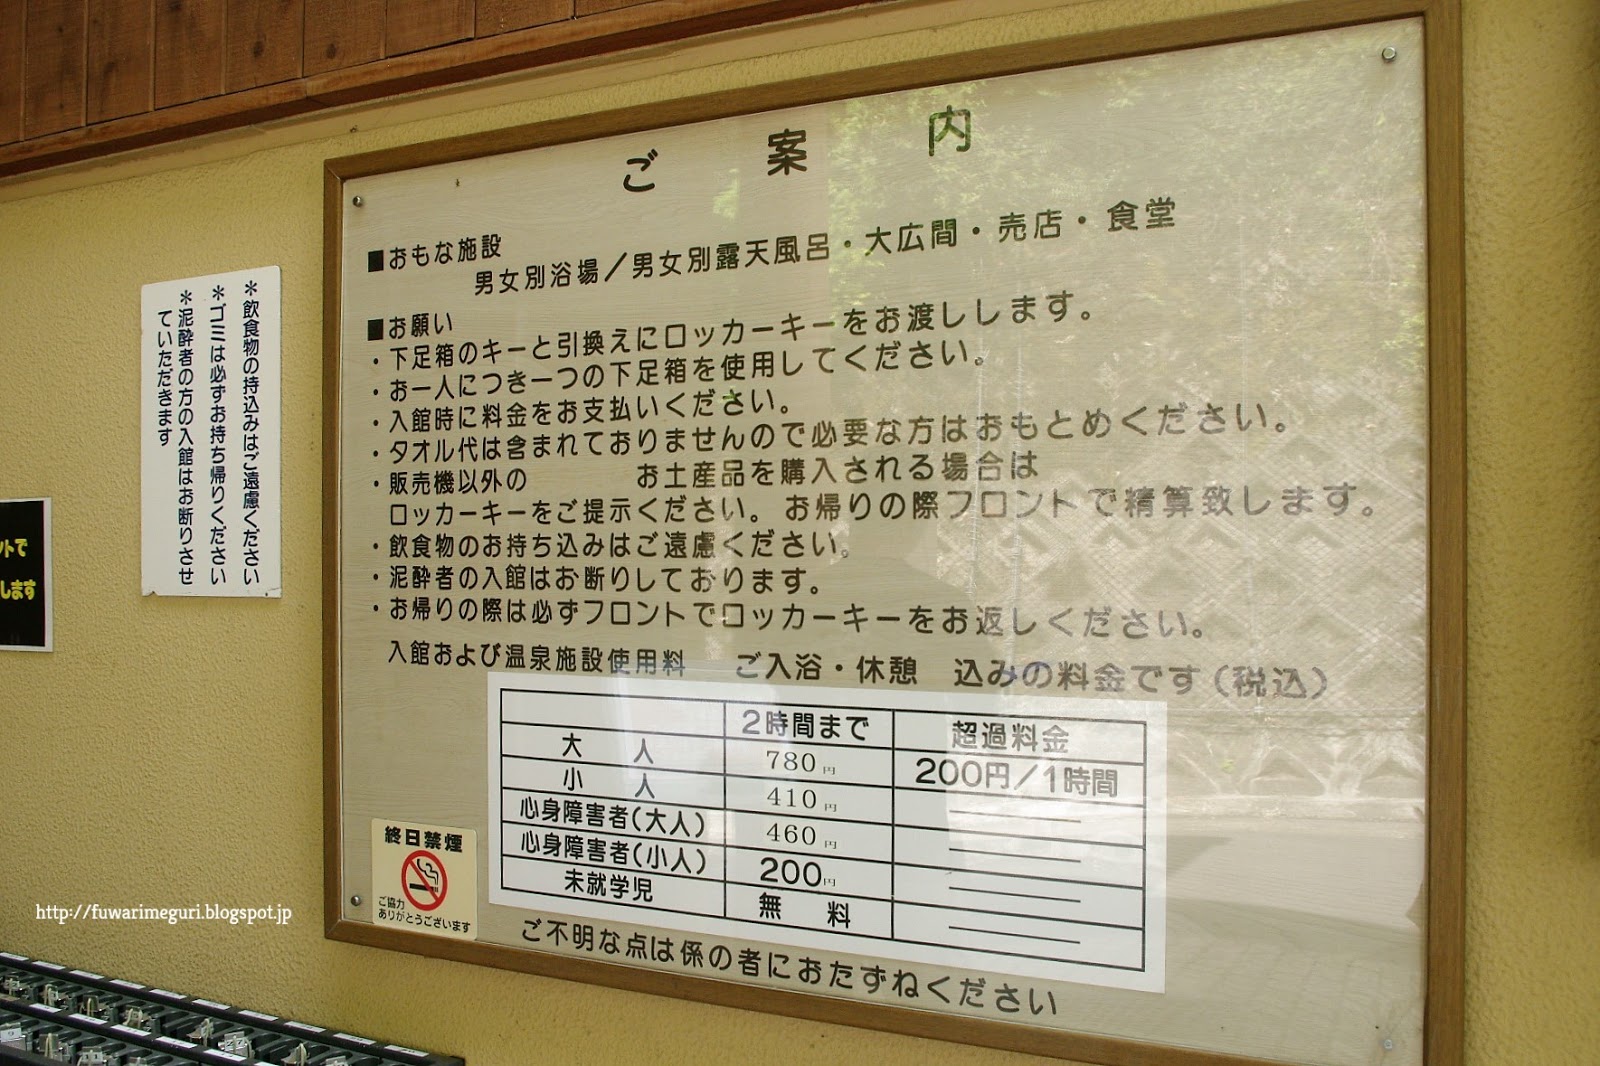 ご案内
■おもな施設
男女別浴場／男女別露天風呂・大広間・売店・食堂
■お願い
・下足箱のキーと引換えにロッカーキーをお渡しします。
・お一人につき一つの下足箱を使用してください。
・入館時に料金をお支払いください。
・タオル代は含まれておりませんので必要な方はおもとめください。
・販売機以外の　　　お土産品を購入される場合は
ロッカーキーをご提示ください。お帰りの際フロントで精算致します。
・飲食物のお持ち込みはご遠慮ください。
・泥酔者の入館はお断りしております。
・お帰りの際は必ずフロントでロッカーキーをお返しください。
入館および温泉施設使用料　ご入浴・休憩　込みの料金です（税込）
2時間まで　超過料金
大人　780円　200円／1時間
小人　410円
心身障害者（大人）　460円
心身障害者（小人）　200円
未就学児　無料
ご不明な点は係の者におたずねください
終日禁煙
ご協力
ありがとうございます
＊飲食物の持込みはご遠慮ください
＊ゴミは必ずお持ち帰りください
＊泥酔者の方の入館はお断りさせ
ていただきます
ントで
します
http://fuwarimeguri.blogspot.jp